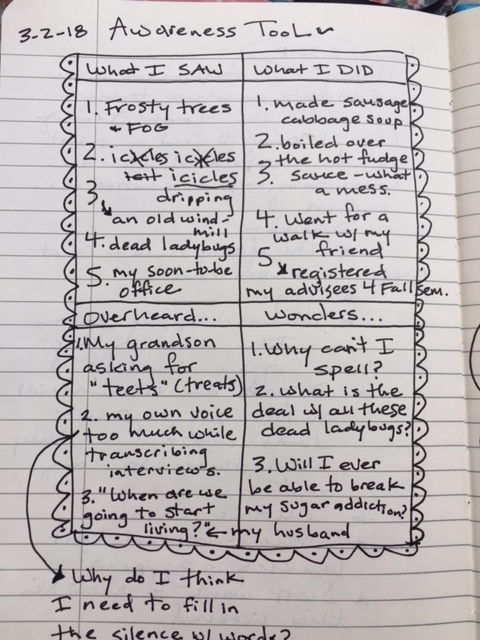 3-2-18 Awareness Tool
What I SAW
1. Frosty trees
+ FOG
2. icicles icicles
icicles
dripping
3. an old wind-
mill
4. dead ladybugs
5. my soon-to-be
office
What I DID
1. made sausage
cabbage soup
2. boiled over
the hot fudge
sauce - what
a mess.
3.
4. Went for a
walk w/ my
friend
5. registered
my advisees 4 Fall sem.
Overheard...
1. My grandson
asking for
"teets" (treats)
2. my own voice
too much while
transcribing
interviews.
3. "When are we
going to start
living?" ← my husband
Wonders...
1. Why can't I
spell?
2. What is the
deal w/ all these
dead ladybugs?
3. Will I ever
be able to break
my sugar addiction?
Why do I think
I need to fill in
the silence w/ words?